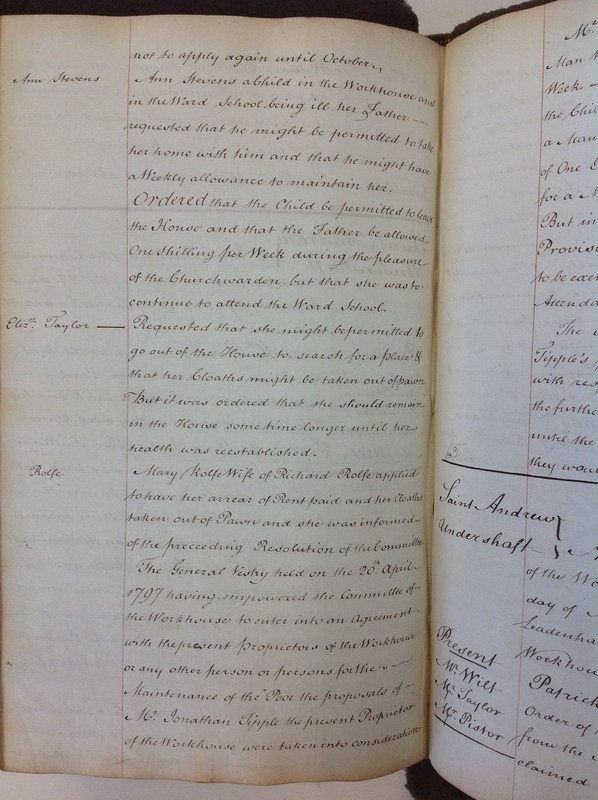 not to apply again until October.
Ann Stevens
Ann Stevens a child in the Workhouse and
in the Ward School being ill her Father
requested that he might be permitted to take
her home with him and that he might have
a Weekly allowance to maintain her.
Ordered that the Child be permitted to leave
the House and that the Father be allowed
One Shilling per Week during the pleasure
of the Churchwarden but that she was to
continue to attend the Ward School.
Elizth. Taylor —
Requested that she might be permitted to
go out of the House to search for a place &
that her Cloaths might be taken out of pawn
But it was ordered that she should remain
in the House some time longer until her
health was reestablished.
Rolfe
Mary Rolfe Wife of Richard Rolfe applied
to have her arrear of Rent paid and her Cloaths
taken out of Pawn and she was informed
of the preceeding Resolution of the Committee
The General Vestry held on the 20th April
1797 having empowered the Committee of
the Workhouse to enter into an Agreement
with the present proprietors of the Workhouse
or any other person or persons for the
Maintenance of the Poor the proposals of
Mr. Jonathan Tipple the present Proprietor
of the Workhouse were taken into consideration
Mr.
Man
Week —
the Chil
a Man
of One
for a
But in
Provis
to be exer
Attenda
The
Tipple's
with res
the furthe
until the
they woul
Saint Andrew
Undershaft
of the Wo
day of
Leadenha
Workhou
Present
Mr. Wilt
Mr. Taylor
Mr. Pistor
Patrick
Order of
from the
claimed